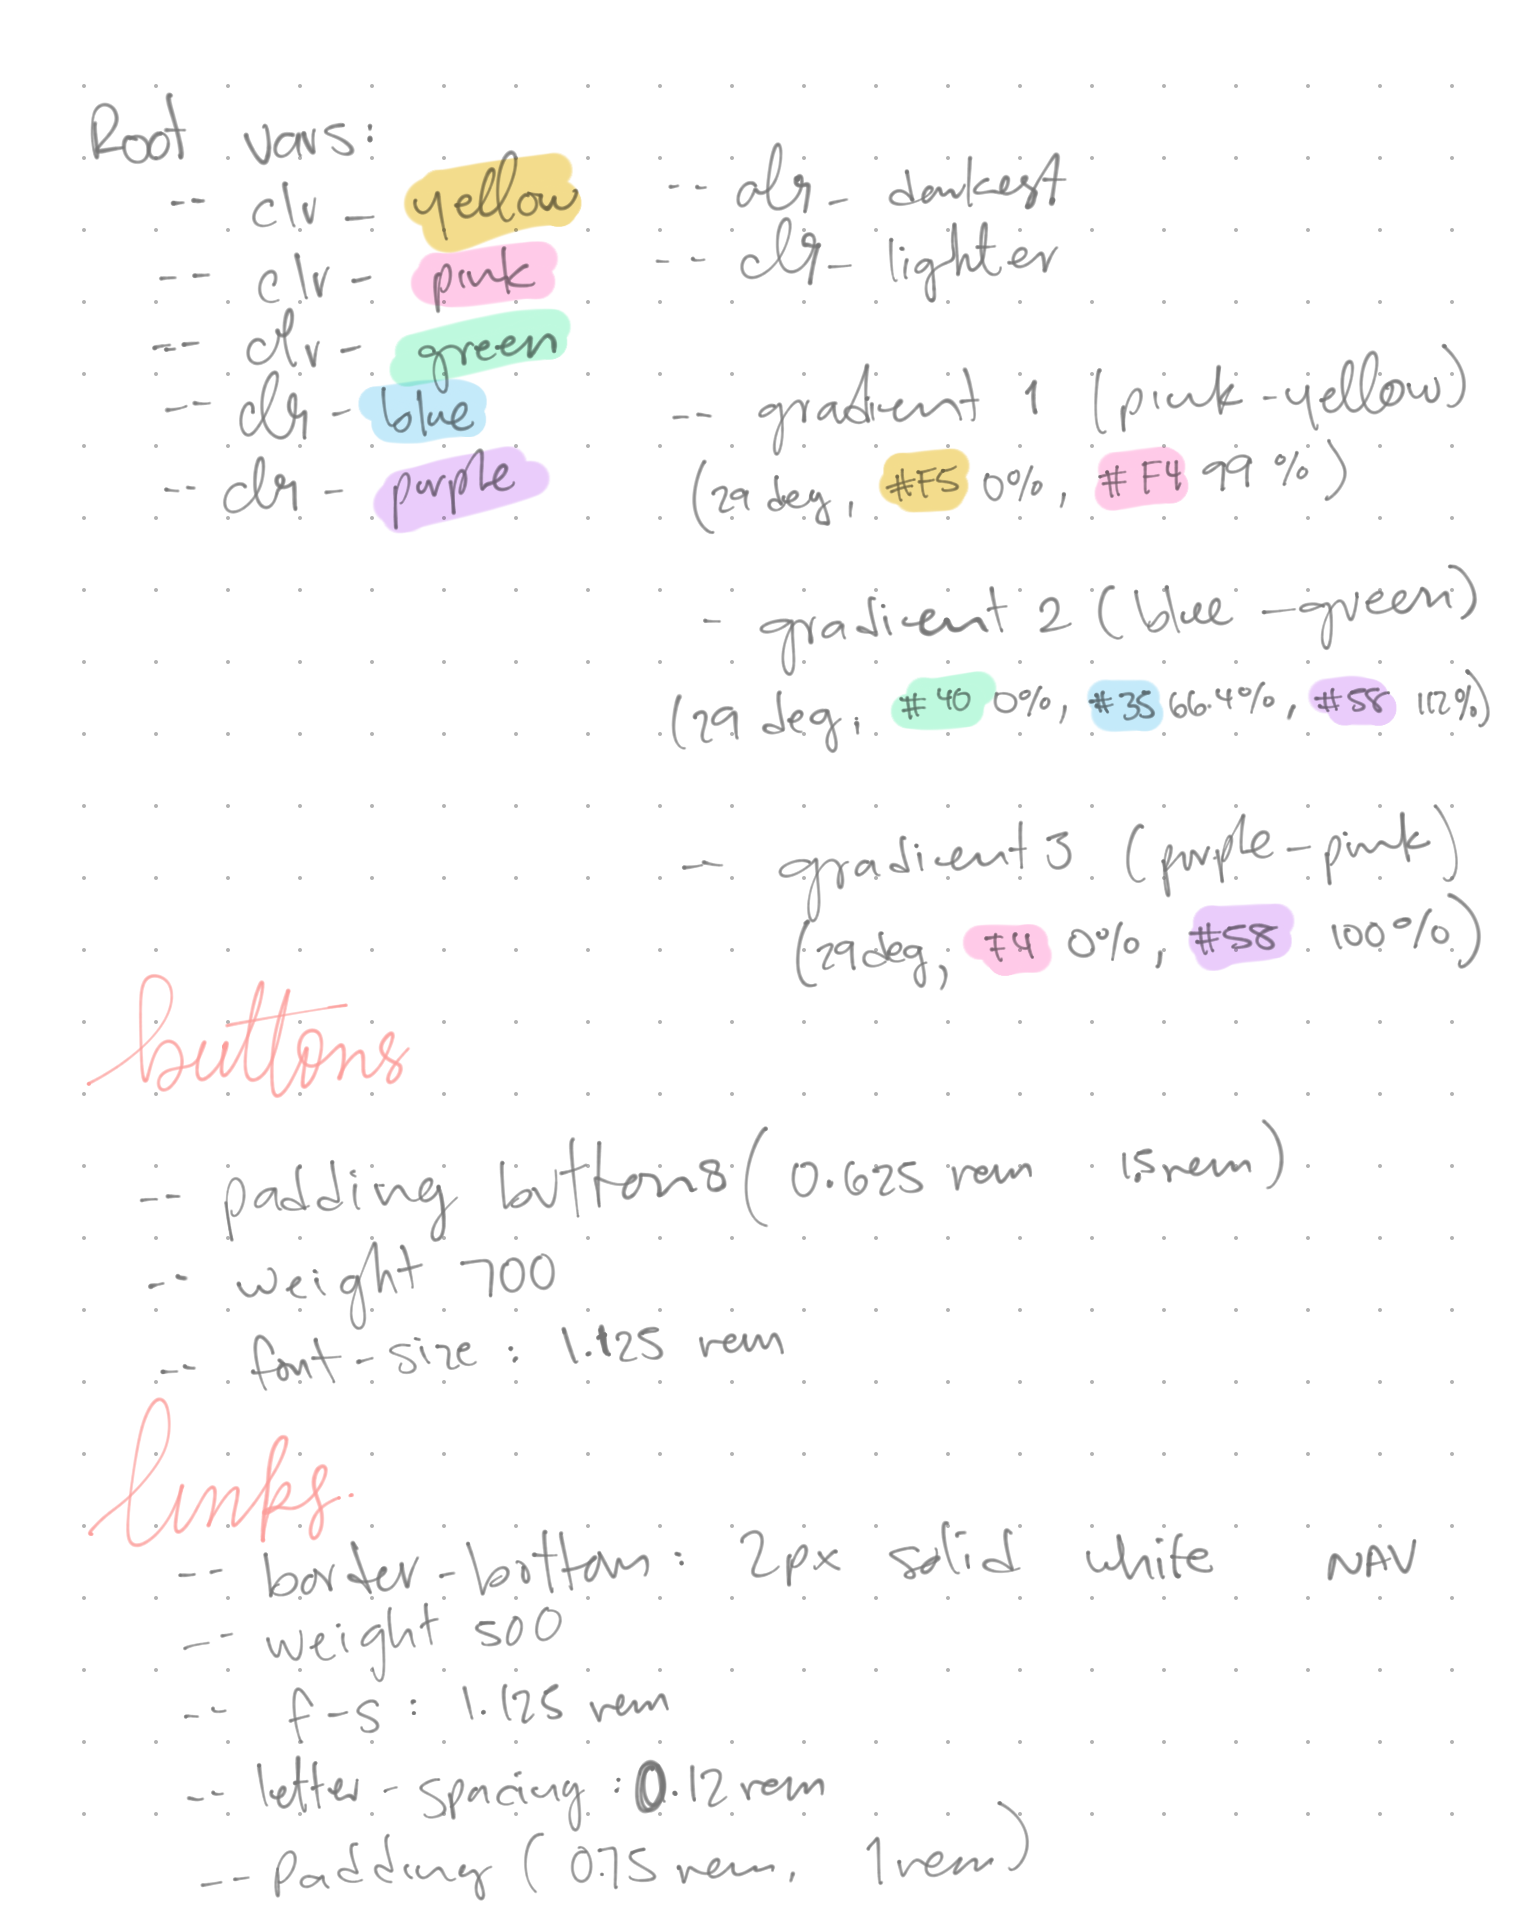 Root vars:
-- clr - yellow
-- clr - pink
-- clr - green
-- clr - blue
-- clr - purple
-- clr - darkest
-- clr - lighter
-- gradient 1 (pink-yellow)
(29 deg, #F5 0%, #F4 99%)
- gradient 2 (blue-green)
(29 deg, #40 0%, #35 66.4%, #58 112%)
-- gradient 3 (purple-pink)
(29deg, F4 0%, #58 100%)
buttons
-- padding buttons (0.625 rem 1.5 rem)
-- weight 700
-- font-size: 1.125 rem
links.
-- border-bottom: 2px solid white NAV
-- weight 500
-- f-s: 1.125 rem
-- letter-spacing: 0.12 rem
-- Padding (0.75 rem, 1 rem)